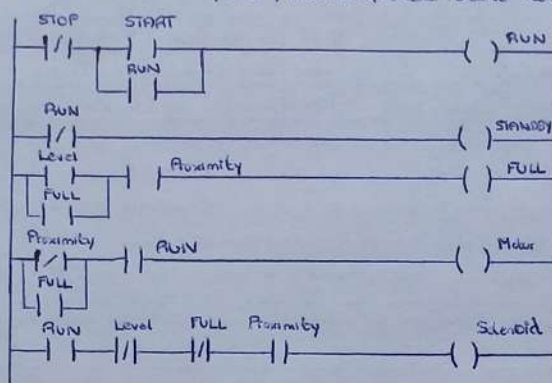 STOP START
RUN
RUN
RUN
STANDBY
Level
Proximity
FULL
FULL
Proximity
RUN
Motor
FULL
RUN Level FULL Proximity
Solenoid